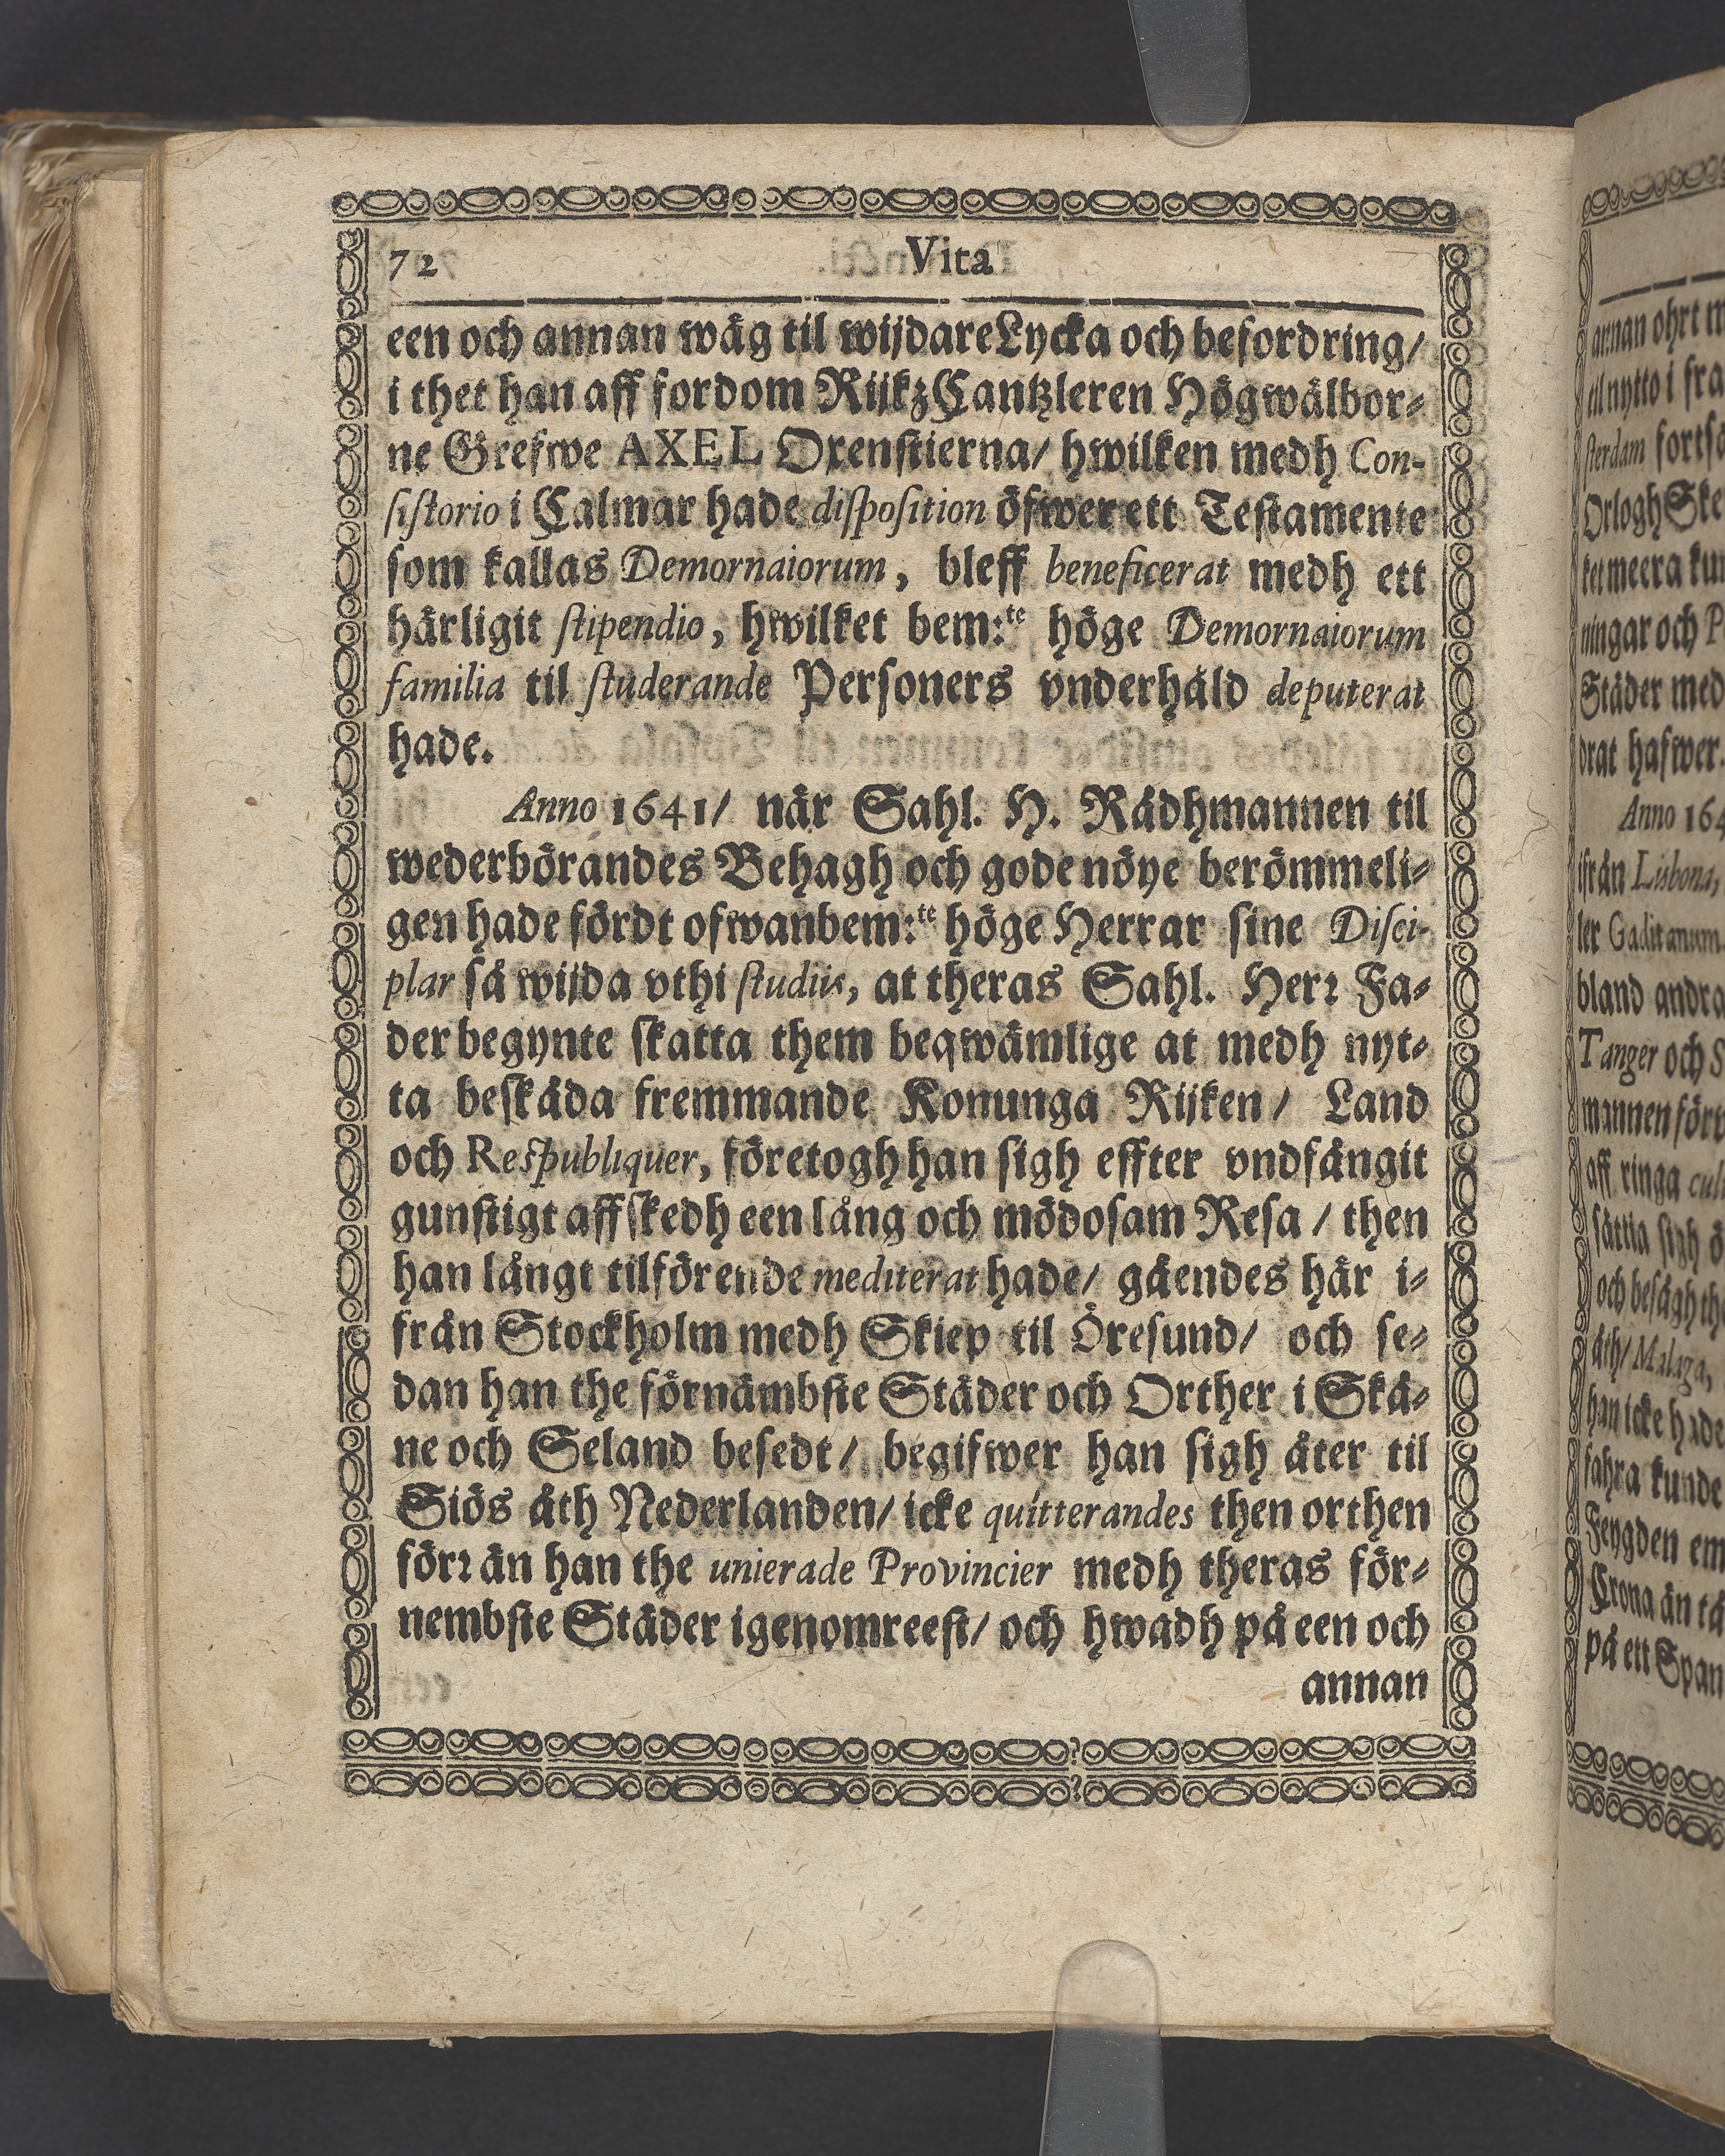 72 Vita
een och annan wäg til wijdare Lycka och befordring/
i thet han aff fordom Rijkz Cantzleren Högwälbor-
ne Grefwe AXEL Oxenstierna/ hwilken medh Con-
sistorio i Calmar hade disposition öfwer ett Testamente
som kallas Demornaiorum, bleff beneficerat medh ett
härligit stipendio, hwilket bem:te höge Demornaiorum
familia til studerande Personers vnderhåld deputerat
hade.
Anno 1641/ när Sahl. H. Rådhmannen til
wederbörandes Behagh och gode nöye berömmeli-
gen hade fördt ofwanbem:te höge Herrar sine Disci-
plar så wijda vthi studiis, at theras Sahl. Herr Fa-
der begynte skatta them beqwämlige at medh nyt-
ta beskåda fremmande Konunga Rijken/ Land
och Respubliquer, företogh han sigh effter vndfångit
gunstigt affskedh een lång och mödosam Resa / then
han långt tilförende mediterat hade/ gåendes här i-
från Stockholm medh Skiep til Öresund/ och se-
dan han the förnämbste Städer och Orther i Skå-
ne och Seland besedt/ begifwer han sigh åter til
Siös åth Nederlanden/ icke quitterandes then orthen
förr än han the unierade Provincier medh theras för-
nembste Städer igenomreest/ och hwadh på een och
annan
annan ohrt m
til nytto i fra
sterdam fortsö
Orlogh Ske
ket meera kun
ningar och P
Städer med
drat hafwer.
Anno 164
ifrån Lisbona,
ler Gaditanum
bland andra
Tanger och S
mannen förv
aff ringa cul
sättia sigh ö
och besågh th
åth/ Malaga,
han icke hade
fahra kunde
Feygden em
Crona än tå
på ett Span